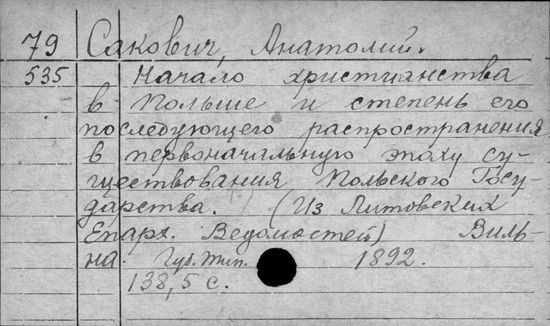 79 Сакович, Анатолий.
535 Начало христианства
в Польше и степень его
последующего распространения
в первоначальную эпоху су-
ществования Польского Госу-
дарства. (Из Литовских
Епарх. Ведомостей) Виль-
на. Губ. тип. 1892.
138,5 с.